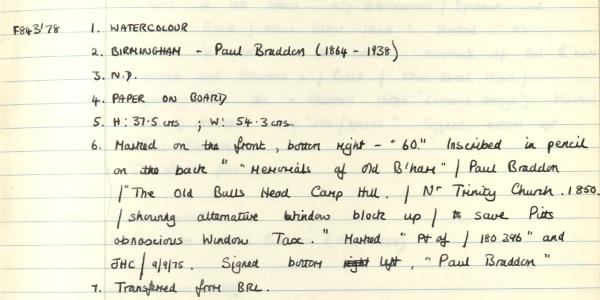 F843'78 1. WATERCOLOUR
2. BIRMINGHAM - Paul Braddon (1864 - 1938)
3. N.D.
4. PAPER ON BOARD
5. H: 37.5 cms ; W: 54.3 cms
6. Marked on the front, bottom right - "60." Inscribed in pencil
on the back " "Memorials of Old B'ham" / Paul Braddon
/ "The Old Bulls Head Camp Hill. / Nr Trinity Church. 1850.
/ showing alternative window block up / to save Pitts
obnoscious Window Tax." Marked " Pt of / 180396" and
JHC / 9/9/75. Signed bottom right left, "Paul Braddon"
7. Transferred from BRL.